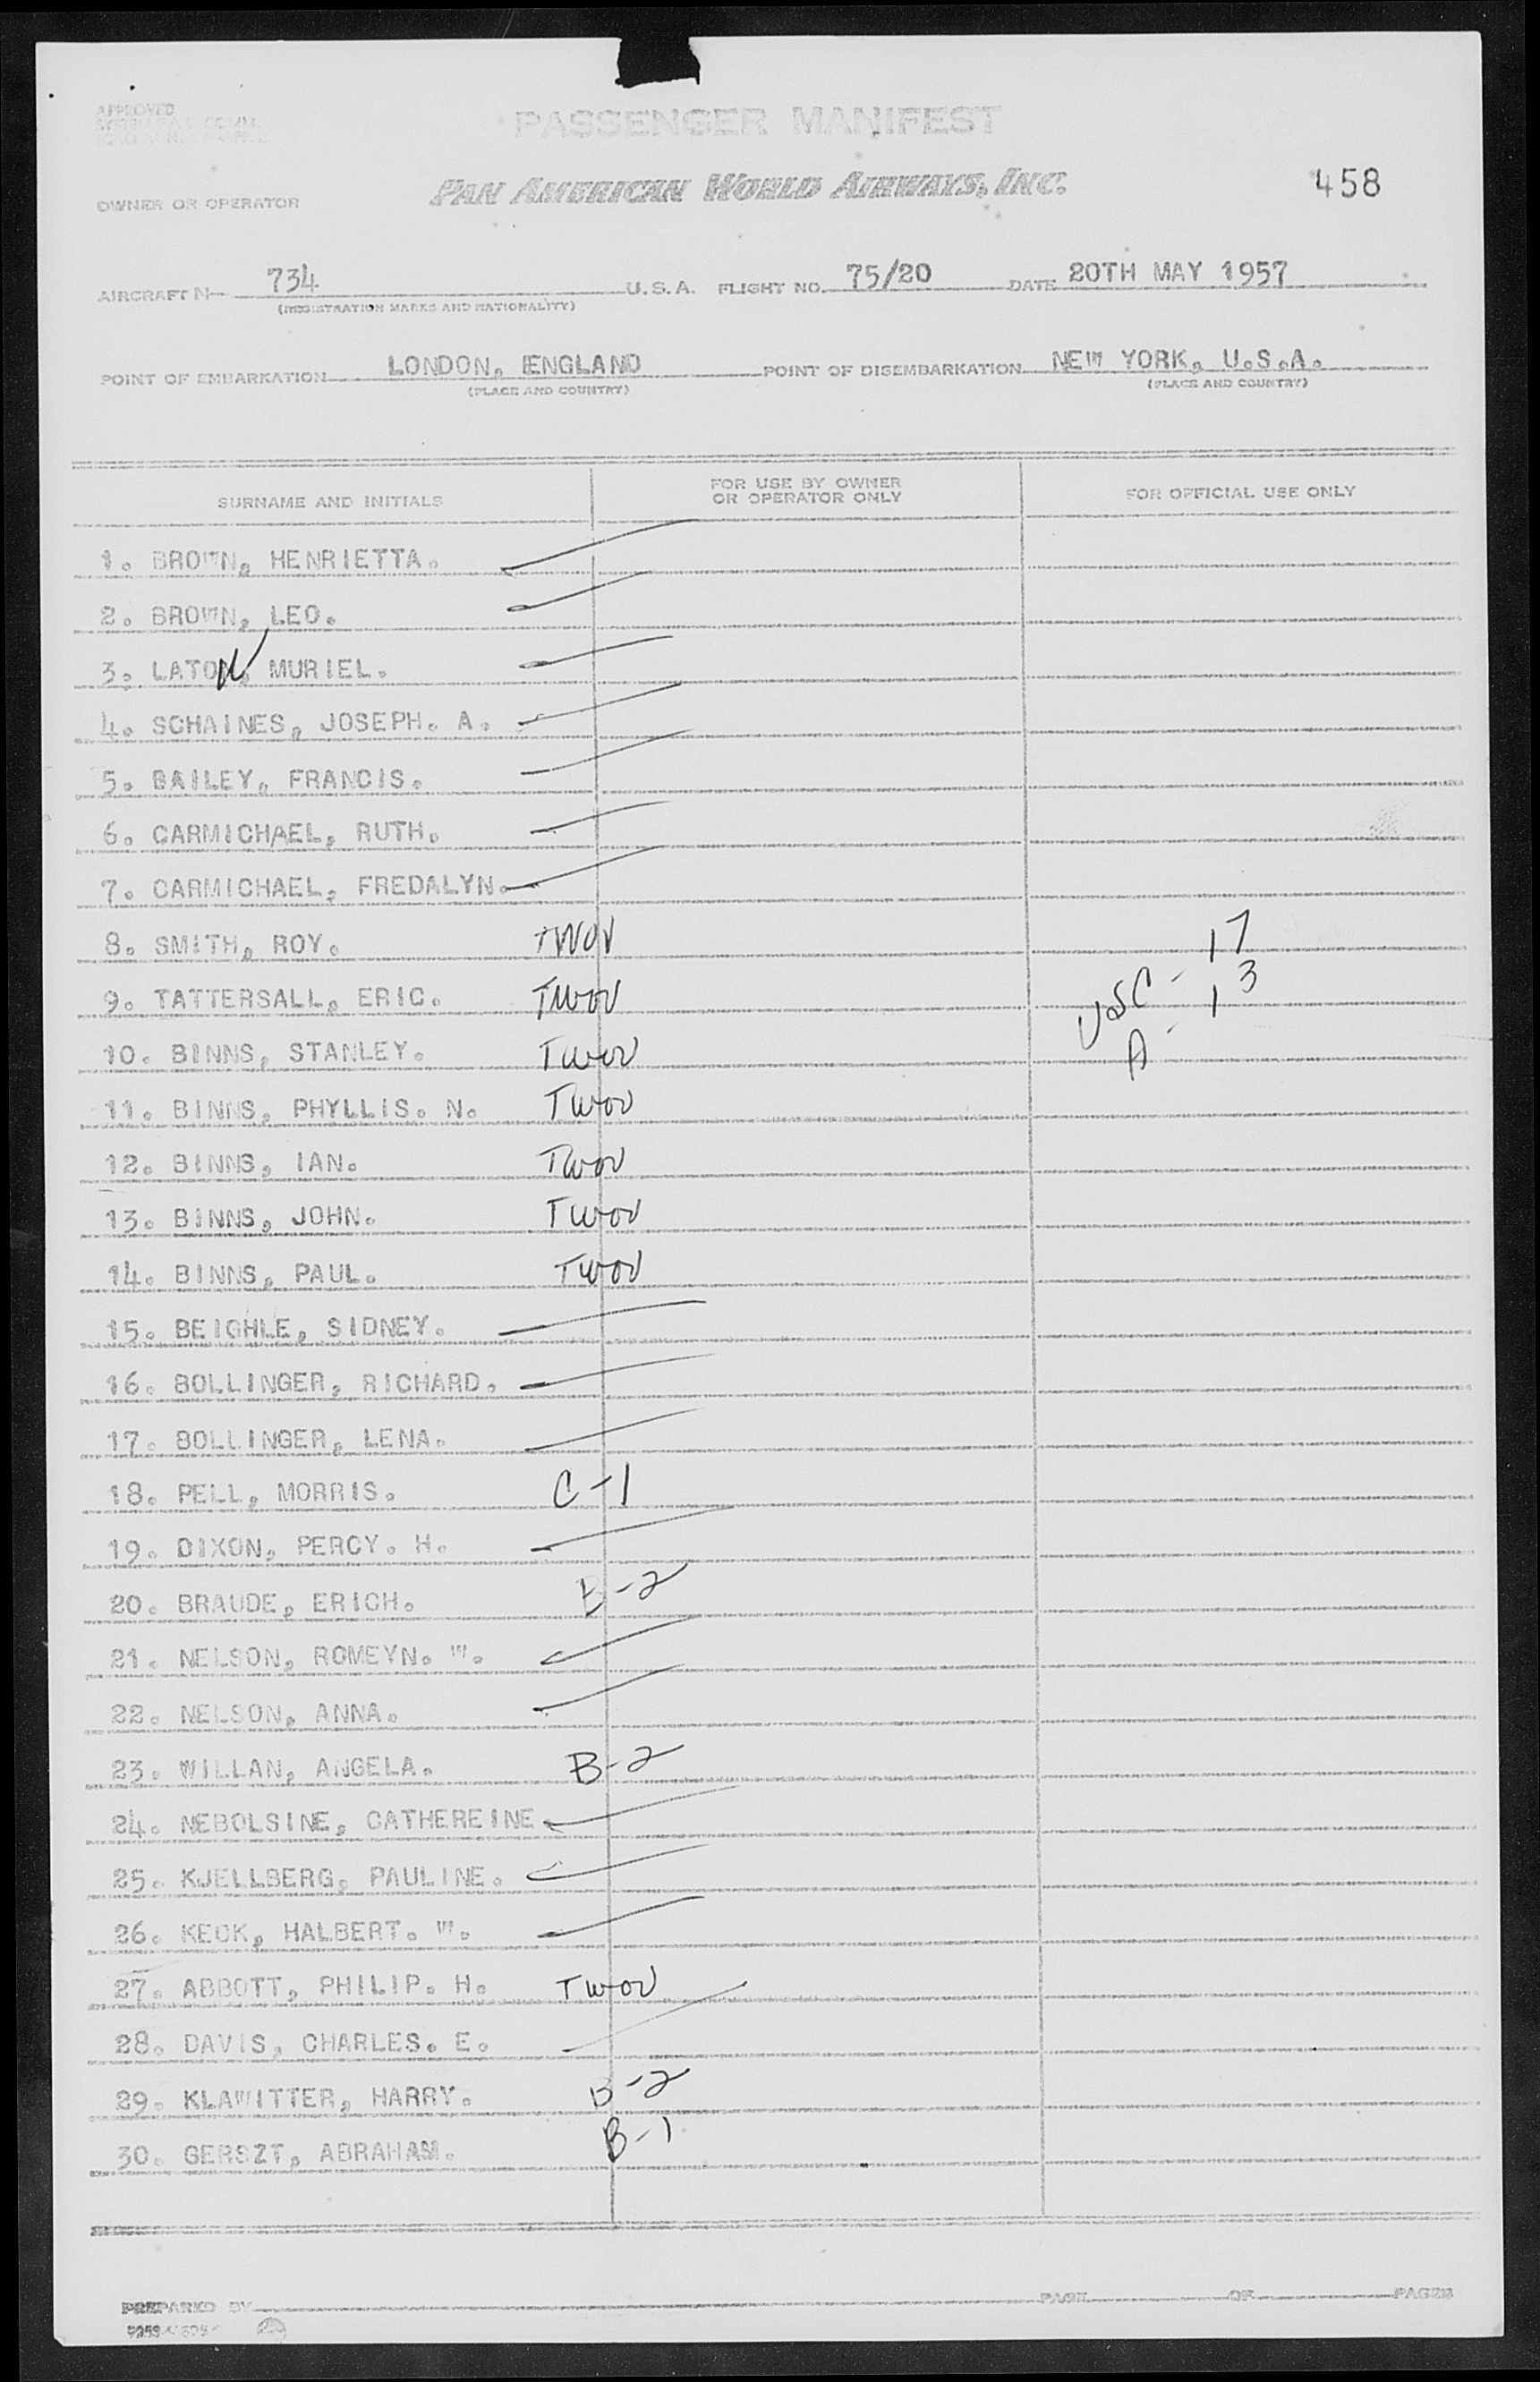 APPROVED
PASSENGER MANIFEST
PAN AMERICAN WORLD AIRWAYS, INC.
458
OWNER OR OPERATOR
AIRCRAFT N 734 U.S.A. FLIGHT NO. 75/20 DATE 20TH MAY 1957
(REGISTRATION MARKS AND NATIONALITY)
POINT OF EMBARKATION LONDON, ENGLAND POINT OF DISEMBARKATION NEW YORK, U.S.A.
(PLACE AND COUNTRY) (PLACE AND COUNTRY)
SURNAME AND INITIALS FOR USE BY OWNER OR OPERATOR ONLY FOR OFFICIAL USE ONLY
1. BROWN, HENRIETTA.
2. BROWN, LEO.
3. LATON, MURIEL.
4. SCHAINES, JOSEPH. A.
5. BAILEY, FRANCIS.
6. CARMICHAEL, RUTH.
7. CARMICHAEL, FREDALYN.
8. SMITH, ROY. TWOV
9. TATTERSALL, ERIC. TWOV USC - 17
10. BINNS, STANLEY. TWOV A - 13
11. BINNS, PHYLLIS. N. TWOV
12. BINNS, IAN. TWOV
13. BINNS, JOHN. TWOV
14. BINNS, PAUL. TWOV
15. BEIGHLE, SIDNEY.
16. BOLLINGER, RICHARD.
17. BOLLINGER, LENA.
18. PELL, MORRIS. C-1
19. DIXON, PERCY. H.
20. BRAUDE, ERICH. B-2
21. NELSON, ROMEYN. W.
22. NELSON, ANNA.
23. WILLAN, ANGELA. B-2
24. NEBOLSINE, CATHEREINE
25. KJELLBERG, PAULINE.
26. KECK, HALBERT. W.
27. ABBOTT, PHILIP. H. TWOV
28. DAVIS, CHARLES. E.
29. KLAWITTER, HARRY. B-2
30. GERSZT, ABRAHAM. B-1
PREPARED BY PAGE OF PAGES